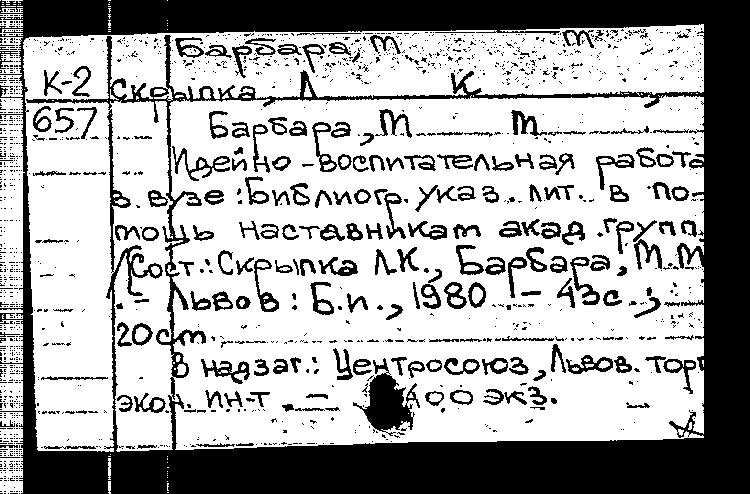 Барбара, М М
К-2 Скрыпка, Л К
657 Барбара, М М ,
Идейно-воспитательная работа
в вузе : Библиогр. указ. лит. в по-
мощь наставникам акад. групп.
/Сост.: Скрыпка Л.К., Барбара, М.М
. – Львов : Б.и., 1980 . – 43с. ;
20см.
В надзаг.: Центросоюз, Львов. торг
экон. ин-т . – 00 экз.